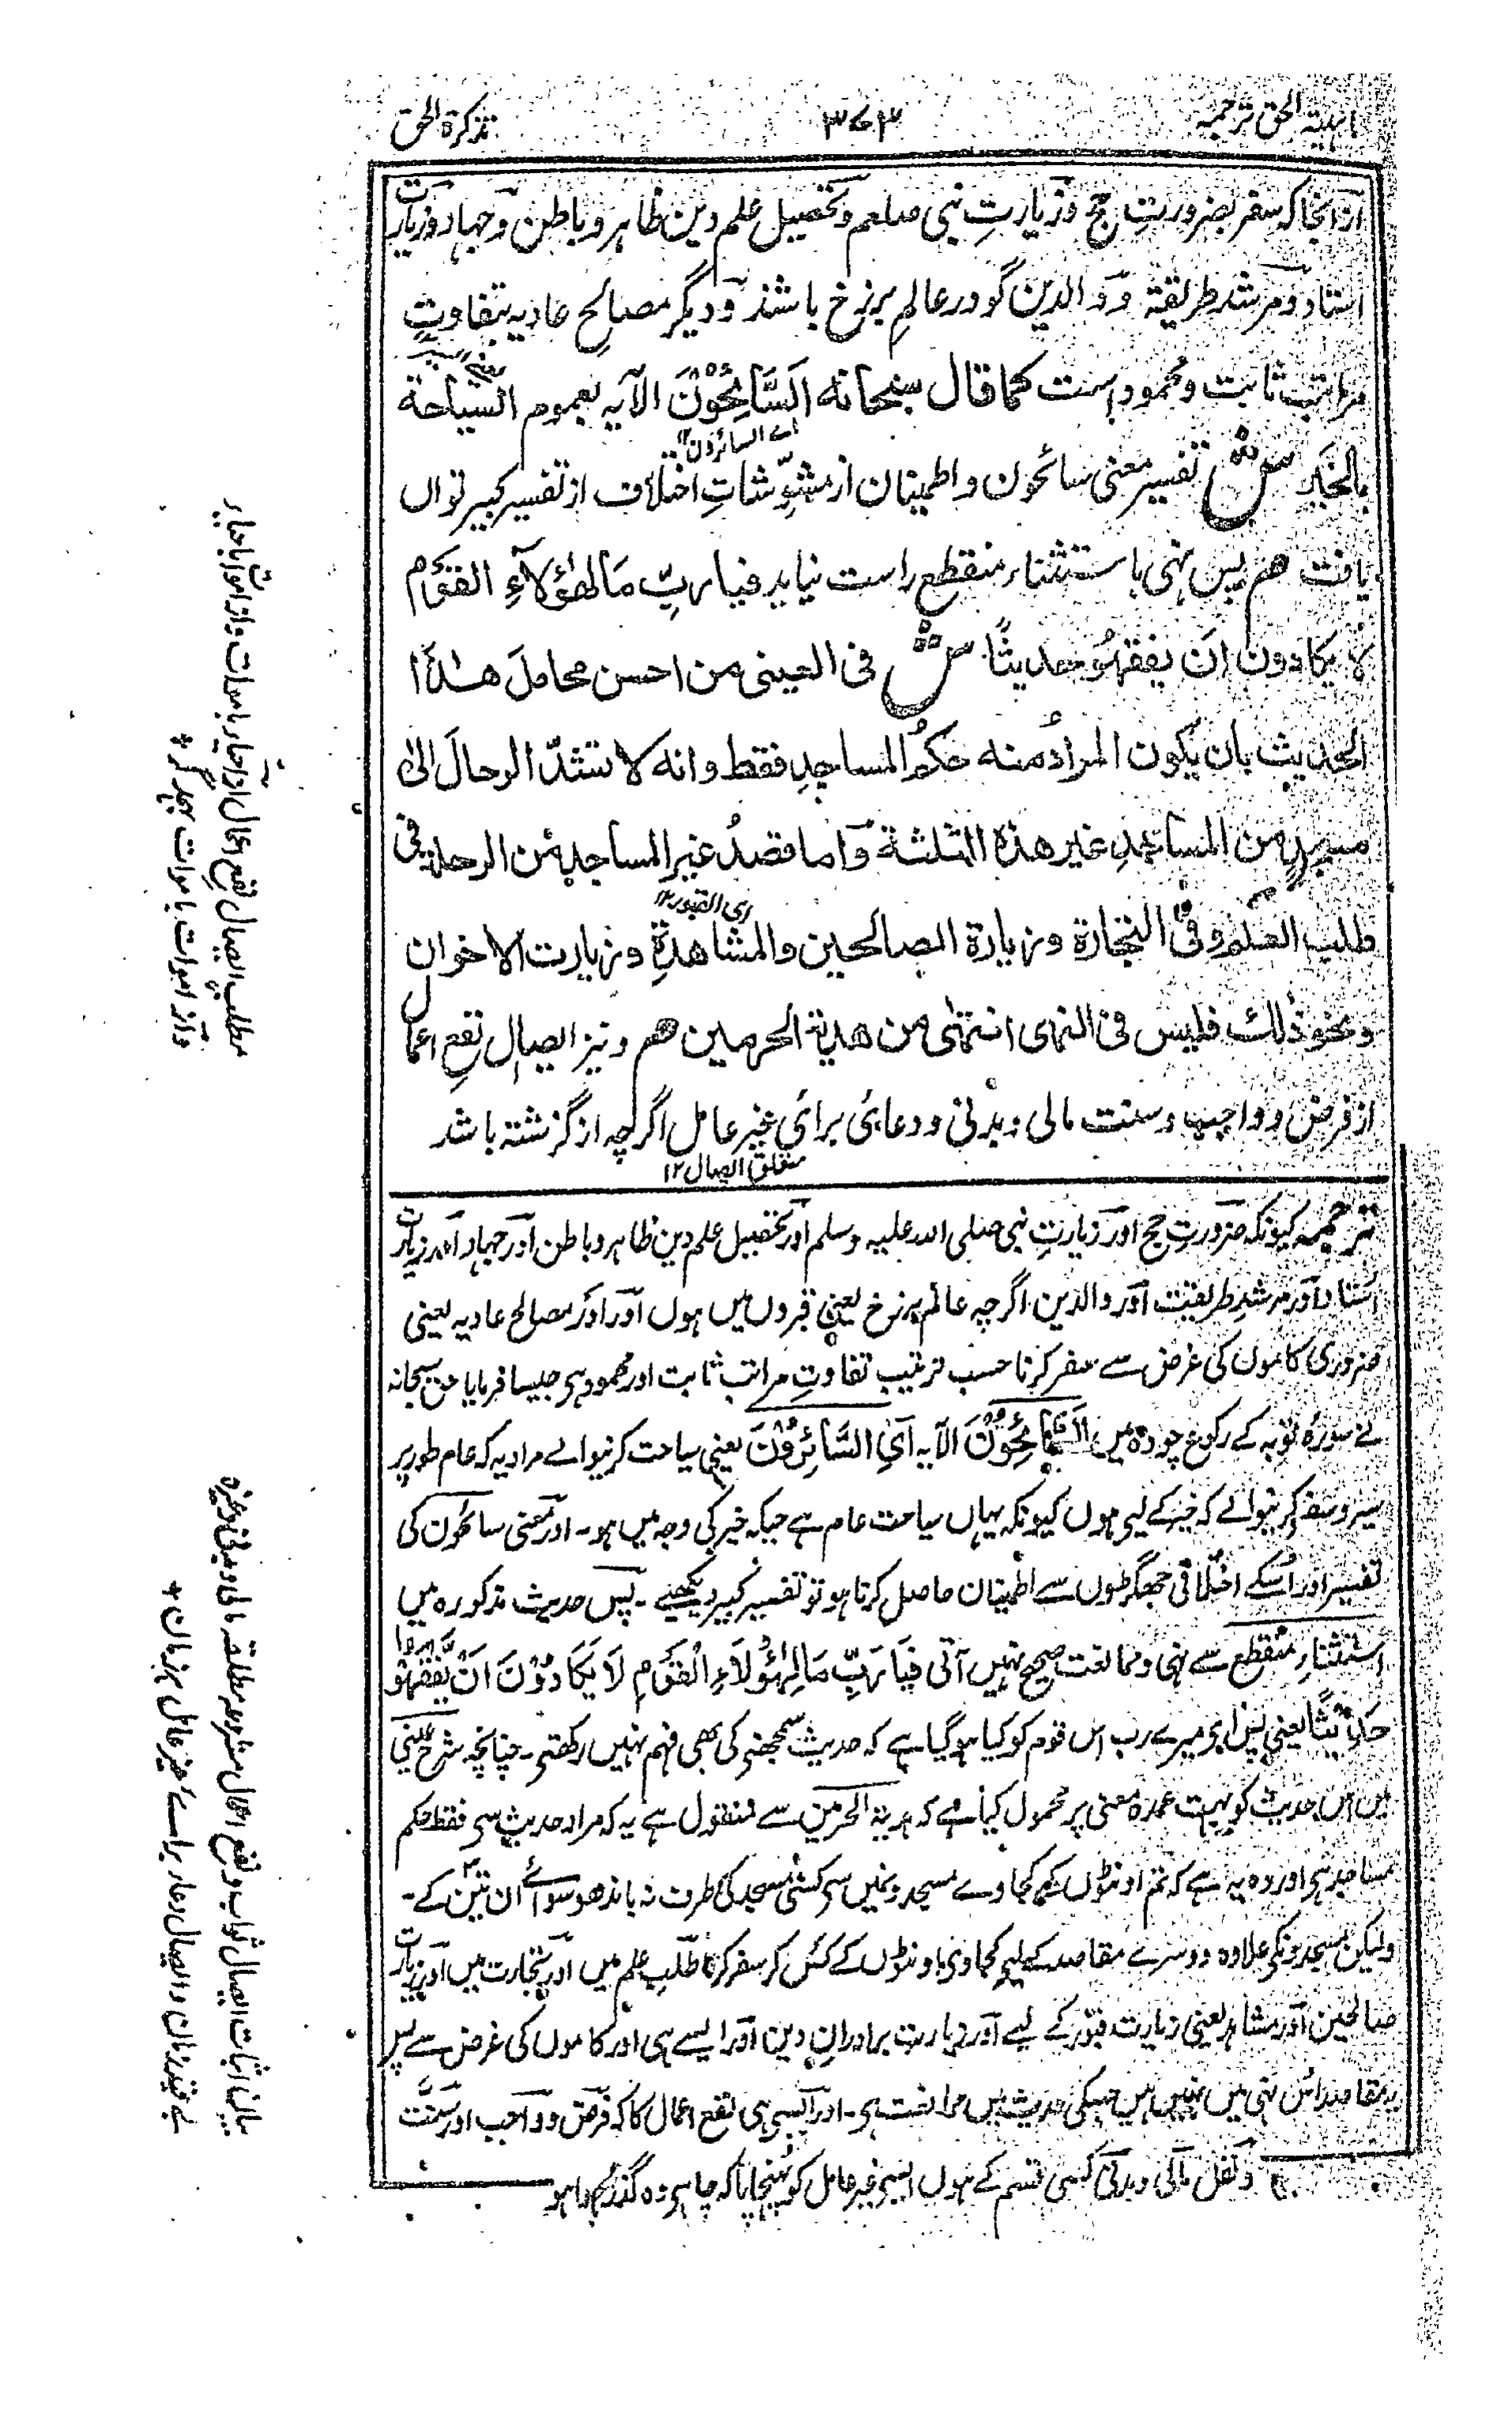 ائینۃ الحق ترجمہ ۳۷۳ تذکرۃ الحق
ازانجا کہ سفر بضرورتِ حج و زیارتِ نبی صلعم و تحصیل علم دین ظاہر و باطن و جہاد و زیارت
استاد و مرشد طریقۃ و والدین گو در عالمِ برزخ باشند و دیگر مصالحِ عادیہ بتفاوتِ
مراتب ثابت و محمود است کما قال سبحانه اَلسَّائِحُوْنَ الآیه بعموم السیاحة
اے السائرون ۱۲
بالخیر ش تفسیر معنی سائحون و اطمینان از مشوّشاتِ اختلاف از تفسیر کبیر تواں
یافت هم پس نہی باستثناء منقطع راست نیاید فیا ربِّ مَا لِهٰؤُلَآءِ القَوْمِ
لا یکادون اَن یفقهوُ حدیثًا ش فی العینی من احسن محامل هٰذا
الحدیث بان یکون المرادُ منه حکمُ المساجدِ فقط وانه لا تشدّ الرحالَ الیٰ
مسجدٍ من المساجدِ غیر هذه الثلثة و اما قصدُ غیر المساجدِ من الرحلة فی
طلب العلم و فی التجارة و زیارة الصالحین والمشاهدةِ و زیارت الاخوان
ای القبور ۱۲
و نحو ذٰلك فلیس فی النهی انتهٰی من هدیة الحرمین هم و نیز ایصالِ نفعِ اعمال
از فرض و واجب و سنت مالی و بدنی و دعائی برائی غیر عامل اگرچہ از گزشتہ باشد
متعلق ایصال ۱۲
ترجمہ کیونکہ ضرورتِ حج اور زیارتِ نبی صلی اللہ علیہ وسلم اور تحصیل علم دین ظاہر و باطن اور جہاد اور زیارت
استاد اور مرشدِ طریقت اور والدین اگرچہ عالمِ برزخ یعنی قبروں میں ہوں اور اور مصالح عادیہ یعنی
ضروری کاموں کی غرض سے سفر کرنا حسب ترتیب تفاوتِ مراتب ثابت اور محمود ہی جیسا فرمایا حق سبحانہ
نے سورۂ توبہ کے رکوع چودہ میں اَلسَّائِحُوْنَ الآیہ اَیِ السَّائِرُوْنَ یعنی سیاحت کرنیوالے مراد یہ کہ عام طور پر
سیر و سفر کرنیوالے کہ خیر کے لیے ہوں کیونکہ یہاں سیاحت عام ہے جبکہ خیر کی وجہ میں ہو۔ اور معنی سائحون کی
تفسیر اور اُسکے اختلافی جھگڑوں سے اطمینان حاصل کرنا ہو تو تفسیر کبیر دیکھیے۔ پس حدیث مذکورہ میں
استثناءِ منقطع سے نہی و ممانعت صحیح نہیں آتی فَیَا رَبِّ مَا لِهٰؤُلَاءِ الْقَوْمِ لَا یَکَادُوْنَ اَنْ یَّفْقَهُوْا
حَدِیْثًا یعنی پس ای میرے رب اس قوم کو کیا ہو گیا ہے کہ حدیث سمجھنی کی بھی فہم نہیں رکھتی۔ چنانچہ شرح عینی
میں اس حدیث کو بہت عمدہ معنی پر محمول کیا ہے کہ ہدیۃ الحرمین سے منقول ہے یہ کہ مراد حدیث سی فقط حکم
مساجد ہی اور وہ یہ ہے کہ تم اونٹوں کے کجاوے مسجدونمیں سی کسی مسجد کی طرف نہ باندھو سوائے ان تین کے۔
ولیکن مسجدونکی علاوہ دوسرے مقاصد کے لیے کجاوی اونٹوں کے کس کر سفر کرنا طلبِ علم میں اور تجارت میں اور زیارت
صالحین اور مشاہد یعنی زیارت قبور کے لیے اور زیارت برادرانِ دین اور ایسے ہی اور کاموں کی غرض سے پس
یہ مقاصد اس نہی میں نہیں ہیں جسکی حدیث میں ممانعت ہی۔ اور ایسی ہی نفع اعمال کا کہ فرض و واجب اور سنت
و نفل مالی و بدنی کسی قسم کے ہوں ایسے غیر عامل کو پہنچانا کہ چاہی وہ گذر گیا ہو
مطلب ایصال نفع اعمال از احیا